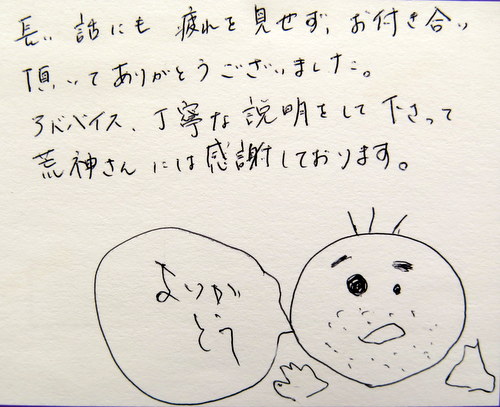 長い話にも疲れを見せず、お付き合い
頂いてありがとうございました。
アドバイス、丁寧な説明をして下さって
荒神さんには感謝しております。
ありが
とう